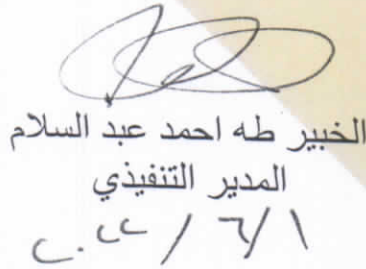 الخبير طه احمد عبد السلام
المدير التنفيذي
٢٠٢٢ / ٦ / ١